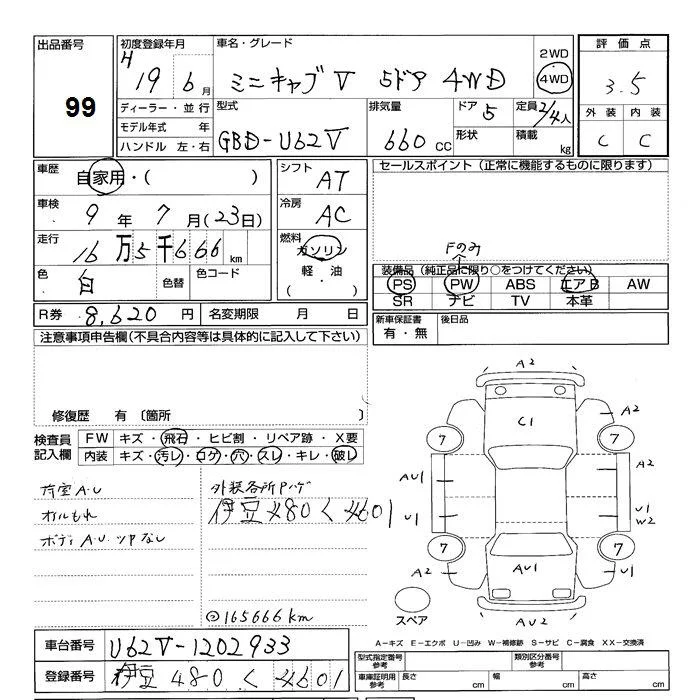 出品番号
99
初度登録年月
H 19 6月
ディーラー・並行
モデル年式 年
ハンドル 左・右
車名・グレード
ミニキャブV 5ドア 4WD
2WD
4WD
型式
GBD-U62V
排気量
660 CC
ドア 5
形状
定員 2/4人
積載 kg
評価点
3.5
外装 内装
C C
車歴
自家用・( )
車検
9年7月(23日)
走行
16万5千666km
色
白
色替
色コード
シフト
AT
冷房
AC
燃料
ガソリン
軽・油
( )
セールスポイント(正常に機能するものに限ります)
Fのみ
装備品(純正品に限り○をつけてください)
PS PW ABS エアB AW
SR ナビ TV 本革
R券 8,620円
名変期限 月 日
新車保証書
有・無
後日品
注意事項申告欄(不具合内容等は具体的に記入して下さい)
修復歴 有〔箇所 〕
検査員記入欄
FW キズ・飛石・ヒビ割・リペア跡・X要
内装 キズ・汚レ・コゲ・穴・スレ・キレ・破レ
荷室A.U
オイルもれ
ボディA.U.ツヤなし
外装各所Pハゲ
伊豆480く4601
◎165666km
A2
C1
A2
7
7
AU1
A1
U1
U1
W2
7
7
A2
AU1
A2
AU2
スペア
A-キズ E-エクボ U-凹み W-補修跡 S-サビ C-腐食 XX-交換済
車台番号 U62V-1202933
登録番号 伊豆480く4601
型式指定番号
参考
類別区分番号
参考
車庫証明用
参考
長さ cm
幅 cm
高さ cm